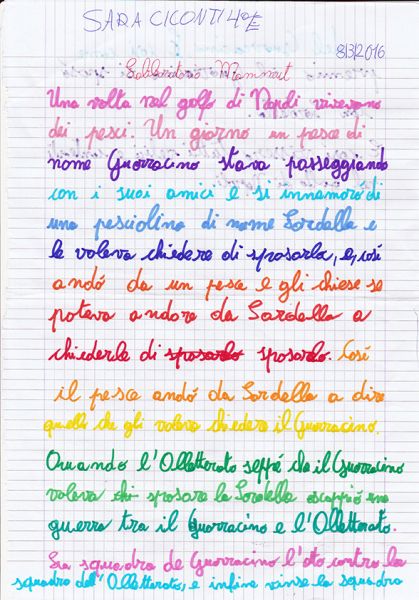 SARA CICONTI 4°E
8/3/2016
Laboratorio Mammut
Una volta nel golfo di Napoli vivevano
dei pesci. Un giorno un pesce di
nome Guorracino stava passeggiando
con i suoi amici e si innamorò di
una pesciolina di nome Sardella e
le voleva chiedere di sposarla, e, così
andò da un pesce e gli chiese se
poteva andare da Sardella a
chiederle di sposarlo sposarlo. Così
il pesce andò da Sardella a dire
quello che gli voleva chiedere il Guorracino.
Quando l'Alletterato seppe che il Guorracino
voleva sposare la Sardella scoppiò una
guerra tra il Guorracino e l'Alletterato.
La squadra de Guorracino contro la
squadra dell'Alletterato, e infine vinse la squadra